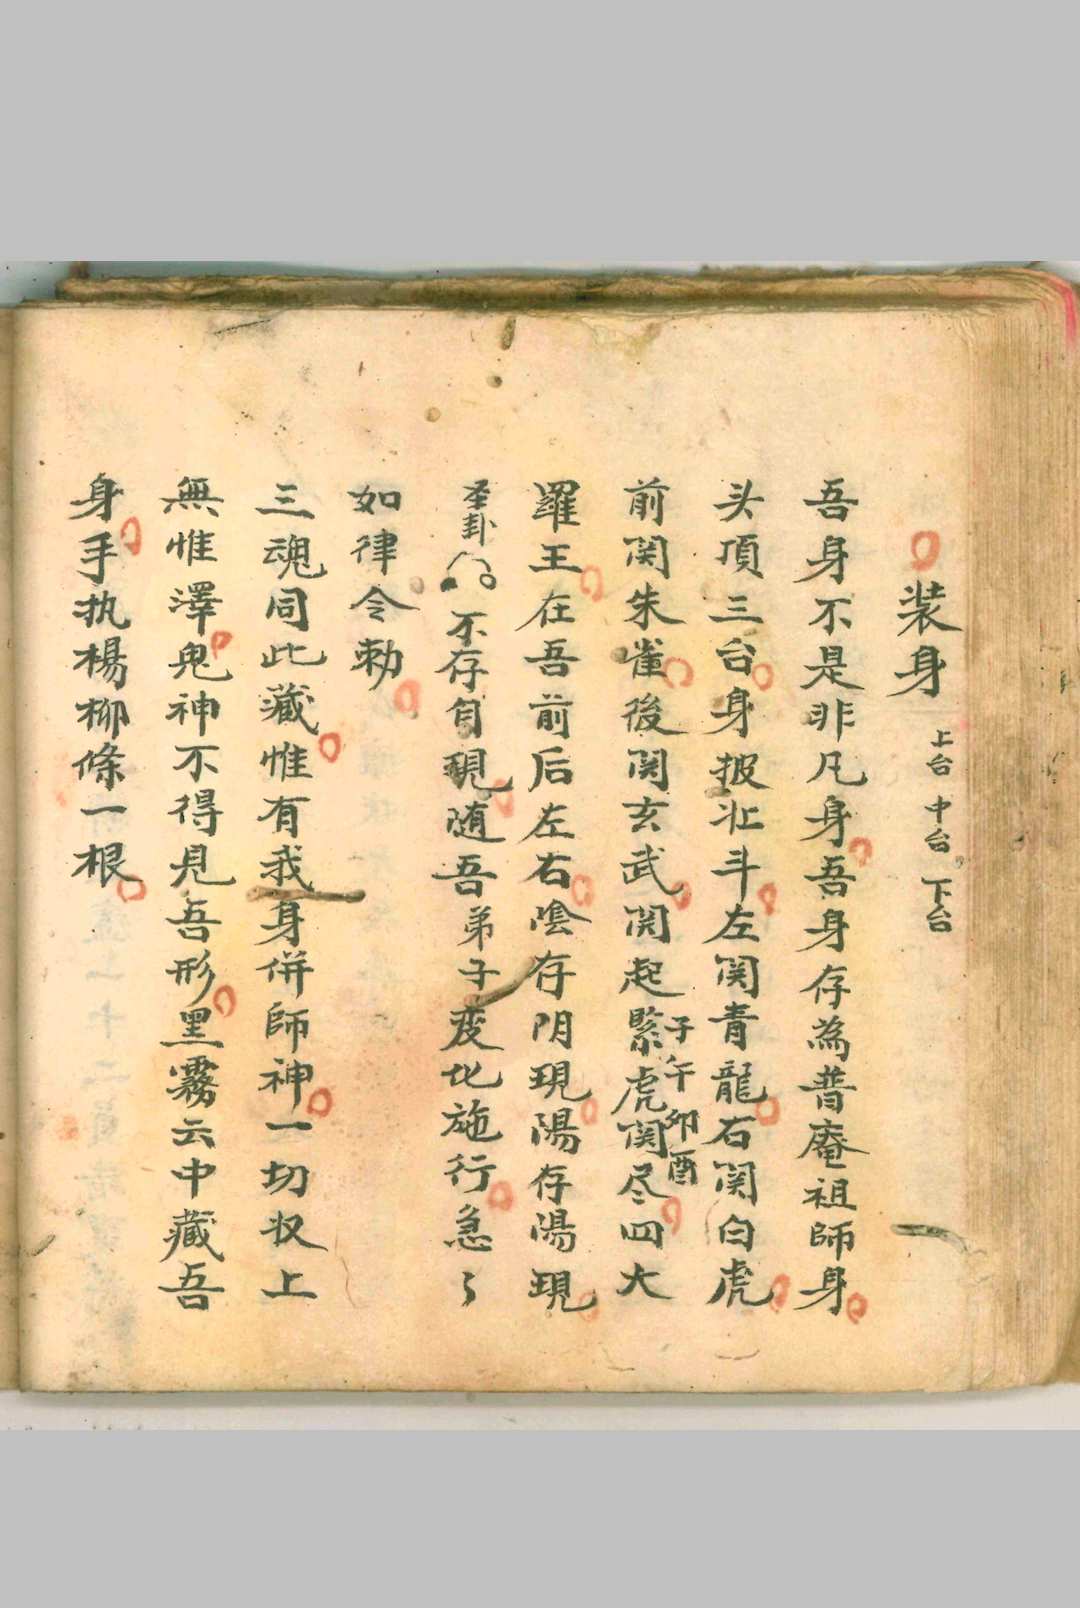 装身 上台 中台 下台
吾身不是非凡身吾身存為普庵祖師身
头頂三台身披北斗左関青龍右関白虎
前関朱雀後関玄武関起緊虎関尽四大 子午卯酉
羅王在吾前后左右陰存阴現陽存陽現
圣卦 不存自現随吾弟子变化施行急々
如律令勅
三魂同此藏惟有我身併師神一切收上
無惟澤鬼神不得見吾形黑霧云中藏吾
身手执楊柳條一根